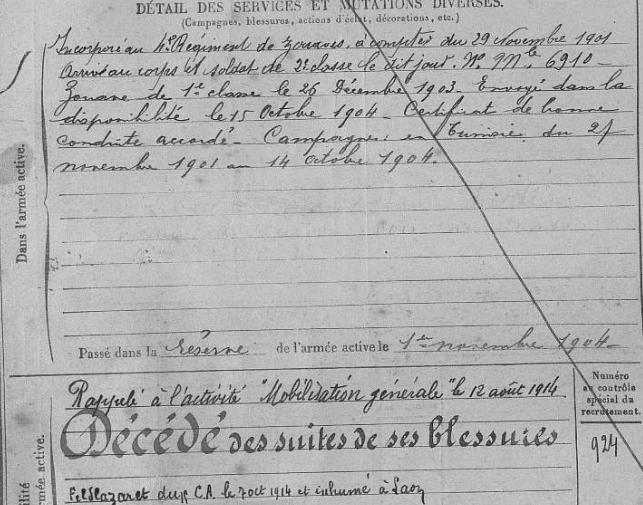 DÉTAIL DES SERVICES ET MUTATIONS DIVERSES.
(Campagnes, blessures, actions d'éclat, décorations, etc.)
Incorporé au 4e Régiment de Zouaves, à compter du 29 Novembre 1901
Arrivé au corps et soldat de 2e classe le dit jour. No Mle 6910 -
Zouave de 1e classe le 26 Décembre 1903. Envoyé dans la
disponibilité le 15 Octobre 1904 - Certificat de bonne
conduite accordé - Campagnes: en Tunisie du 27
novembre 1901 au 14 octobre 1904.
Dans l'armée active.
Passé dans la Réserve de l'armée active le 1er novembre 1904
Rappelé à l'activité "Mobilisation générale" le 12 août 1914
Décédé des suites de ses blessures
Feldlazaret du C.A. le 7 oct 1914 et inhumé à Laon
Numéro
au contrôle
spécial du
recrutement.
924
ilité
rmée active.